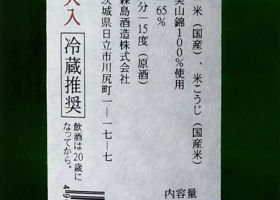 米(国産)、米こうじ(国産米)
美山錦100%使用
65%
内容量
分―15度(原酒)
森島酒造株式会社
茨城県日立市川尻町1―17―7
入
冷蔵推奨
飲酒は20歳に
なってから。
49